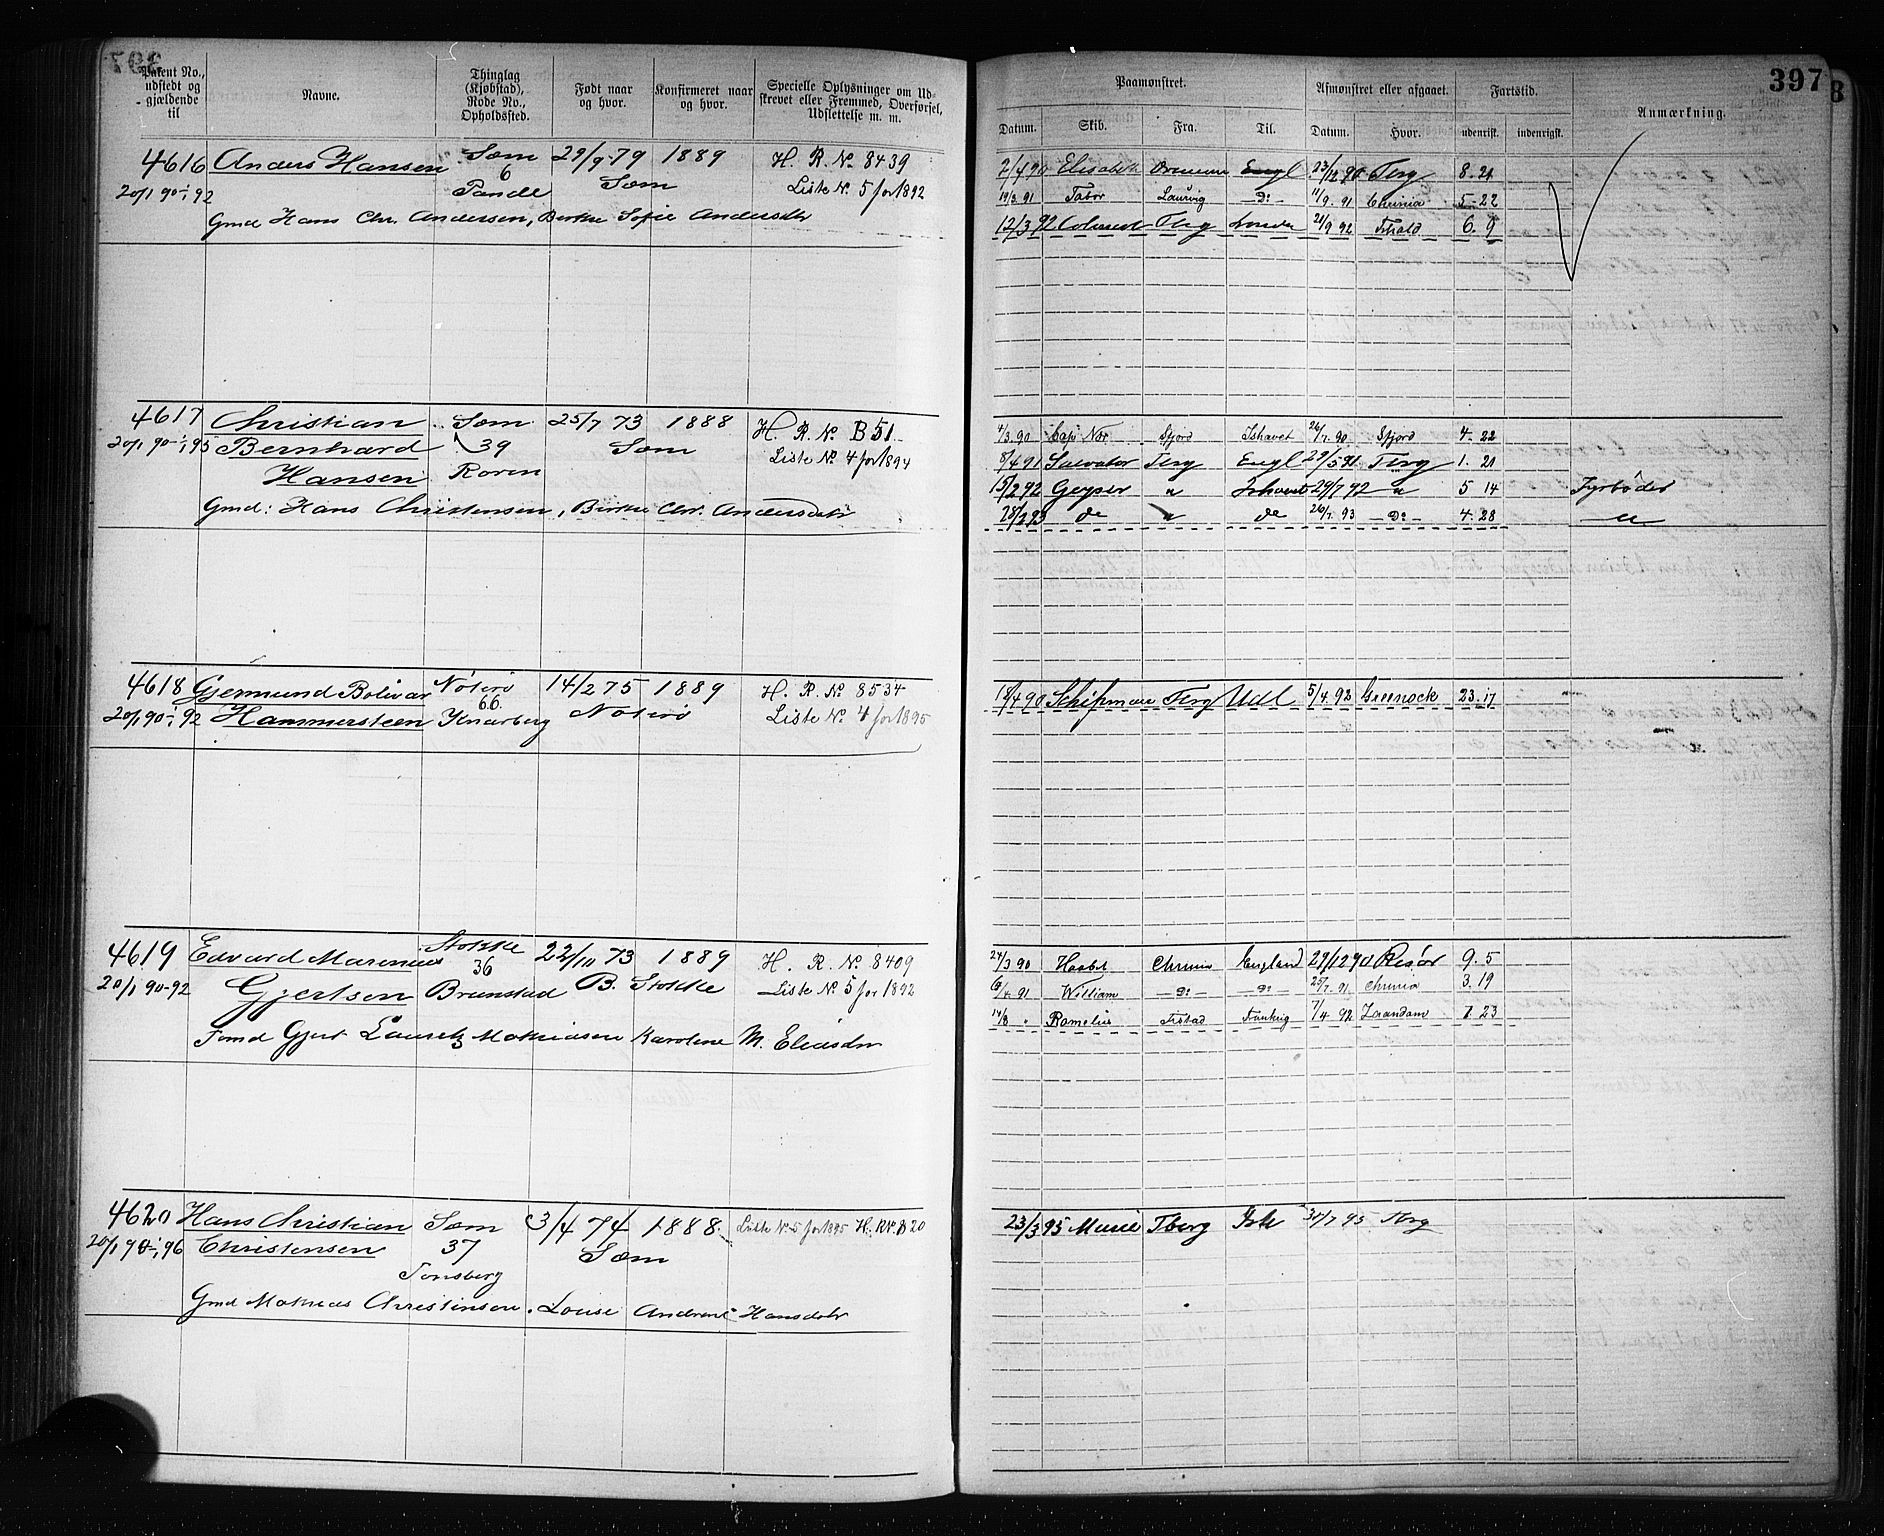 397
Patent No., udstedt og gjældende til
Navne.
Thinglag (Kjøbstad), Rode No., Opholdssted.
Født naar og hvor.
Konfirmeret naar og hvor.
Specielle Oplysninger om Udskrevet eller Fremmed, Overførsel, Udslettelse m. m.
Paamønstret.
Afmønstret eller afgaaet.
Fartstid.
Anmærkning.
Datum. Skib. Fra. Til. Datum. Hvor. udenrigst. indenrigst.
4616 Anders Hansen Sæm 29/9 79 1889 H. R. No. 8439
20/1 90 - 92 6 Pande Sæm Liste No. 5 for 1892
Gmd Hans Chr. Andersen, Birthe Sofie Andersdtr
2/4 90 Elisabeth Engl 23/12 90 Tbrg 8. 21
19/3. 91 Tabor Laurvig Do 11/9. 91 Chrinia 5 - 22
12/3 92 Tbrg 21/9 92 Fhald 6. 9
4617 Christian Sæm 25/7 73 1888 H. R. No. B 51
20/1 90 - 95 Bernhard 39 Sæm Liste No. 4 for 1894
Hansen Roren
Gmd: Hans Christensen, Birthe Chr. Andersdatr
4/3 90 Cap Nor Sfjord Ishavet 26/7. 90. Sfjord 4. 22
8/4 91 Salvator Tbrg Engl 29/5 91 Tbrg 1. 21
15/2 92 Geyser " Ishavet 29/7 92 " 5 14 Fyrbøder
28/2 93 do " do 26/7. 93 Do 4. 28 "
4618 Gjermund Bolivar Nøterø 14/2 75 1889 H. R. No 8534
20/1 90 - 92 Hammersteen 66. Knarberg Nøterø Liste No. 4 for 1895
18/4 90 Tbrg Udl 5/4. 92 Greenock 23. 17
4619 Edvard Marenius Stokke 22/11 73 1889 H. R. No. 8409
20/1 90 - 92 Gjertsen 36 Brunstad B. Stokke Liste No. 5 for 1892
Fmd Gjert Lauretz Mathiasen Karoline M. Eliasdr
24/3 90 Haabet Chrinia England 29/12 90 Risør 9. 5
6/4. 91 William Do Do 25/7. 91 Chrinia 3. 19
14/8 " Romelius Frstad Frankrig 7/4. 92 Zaandam 7. 23
4620 Hans Christian Sæm 3/4 74 1888. Liste No. 5 for 1895 H. R No. B 20
20/1 90 - 96 Christensen 37 Sæm
Tønsberg
Gmd Mathias Christensen. Louise Andrine Hansdatr
23/3 95 Tberg Ish 31/7 95 Tbrg